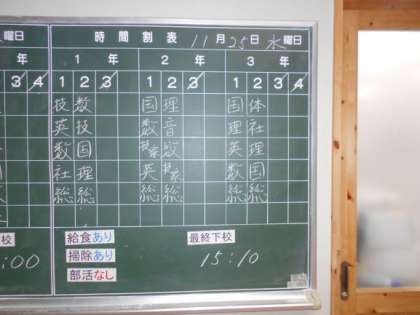 曜日 時間割表 11月25日水曜日
年 1年 2年 3年
3 4 1 2 3 1 2 3 1 2 3 4
技 数 国 理 国 体
英 技 数 音 理 社
数 国 技家 数 英 理
社 理 英 技家 数 国
総 総 総 総 総 総
校 給食あり 最終下校
:00 掃除あり 15:10
部活なし